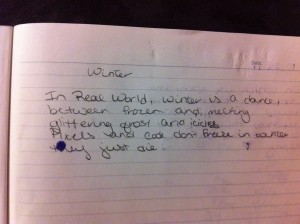 Winter
In Real World, winter is a dance,
between frozen and melting
glittering frost and icicles
Pixels and code don't freeze in winter
they just die.